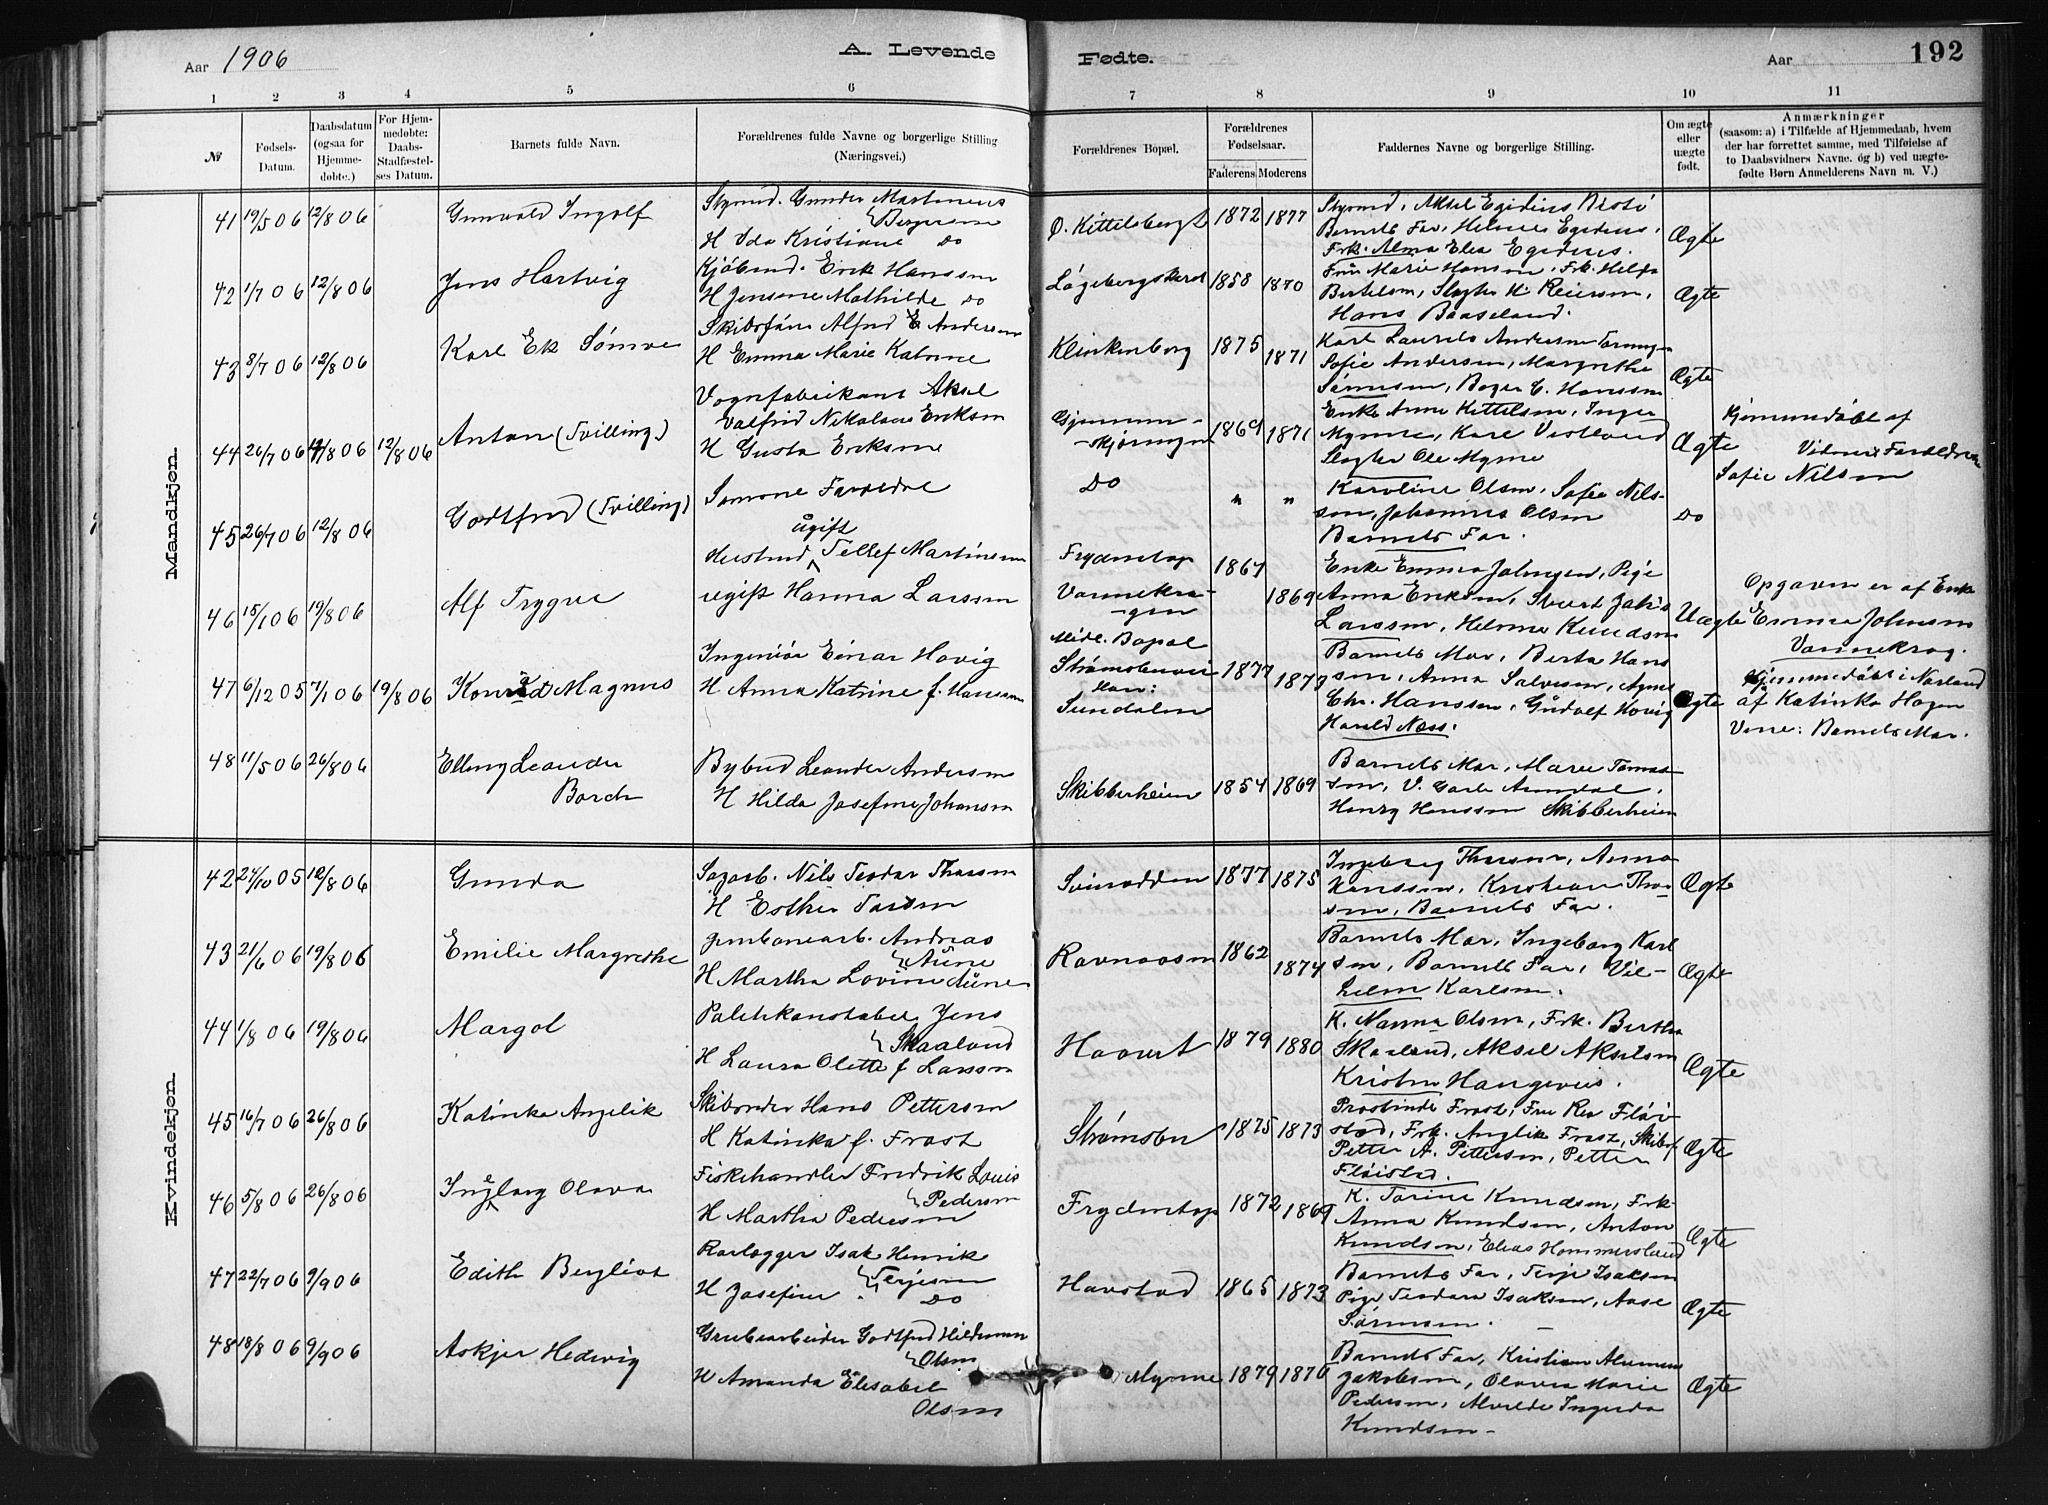 Aar 1906
A. Levende
Fødte.
Aar
192
1 2 3 4 5 6 7 8 9 10 11
№
Fødsels-
Datum.
Daabsdatum
(ogsaa for
Hjemme-
døbte.)
For Hjem-
medøbte:
Daabs-
Stadfæstel-
ses Datum.
Barnets fulde Navn.
Forældrenes fulde Navne og borgerlige Stilling
(Næringsvei.)
Forældrenes Bopæl.
Forældrenes
Fødselsaar.
Faderens Moderens
Faddernes Navne og borgerlige Stilling.
Om ægte
eller
uægte
født.
Anmærkninger
(saasom: a) i Tilfælde af Hjemmedaab, hvem
der har forrettet samme, med Tilføielse af
to Daabsvidners Navne. og b) ved uægte-
fødte Børn Anmelderens Navn m. V.)
Mandkjøn.
41 19/5 06 12/8 06
Gunvald Ingolf
Styrmd. Gunder Martinius
H Ida Kristiane Do
Ø. Kittelsbergt
1872 1877
Barnets Far, Helmer Egidius,
Frk. Alma Elea Egidius.
Ægte
42 1/7 06 12/8 06
Jens Hartvig
Kjøbmd. Erik Hanssen
H Jensine Mathilde Do
1858 1870
Frü Marie Hansen, Frk. Hilda
Bertelsen, Slagter H. Reiersen,
Hans Baaseland.
Ægte
43 8/7 06 12/8 06
Karl Ek
Skibsfører Alfred E Andersen
H Emma Marie Katrine
Klinkenberg
1875 1871
Karl Laurits Andersen
Sofie Andersen, Margrethe
Sørensen, Bager C. Hanssen
Ægte
44 26/7 06 12/8 06 12/8 06
Anton (Tvilling)
Vognfabrikant Aksel
Valfrid Nikolaus Eriksen
H Gusta Eriksen
1869 1871
Enke Anne Kittelsen, Inger
Myrene, Karl Vestland
Slagter Ole Myrene
Ægte
Hjemmedøbt af
Vidner: Forældrene
Sofie Nilsen
45 26/7 06 12/8 06
Godtfred (Tvilling)
Samme Forældre
Do
" "
Karoline Olsen, Sofie Nils-
sen, Johannes Olsen
Barnets Far.
Do
46 15/1 06 19/8 06
Alf Trygve
ügift
Tellef Martinsen
ugift Hanna Larssen
Frydentop
Vannekra-
gen
1867 1869
Enke Emma Johnsen, Pige
Anna Eriksen,
Larssen, Helmer Knudsen
Uægte
Opgaven er af Enke
Emma Johnsen
Vannekrag.
47 6/12 05 7/1 06 19/8 06
Konrad Magnus
Ingeniør Einar Hovig
H Anna Katrine f. Hanssen
Midl. Bopæl
Strømsbuvei
Han:
Sundalen
1877 1879
Barnets Mor, Berta Hans
sen, Anna Salvesen, Agnes
Chr. Hanssen, Gudolf Hovig
Harald Næss.
Ægte
Hjemmedøbt i Norland
af Katinka Hagen
Barnets Mor.
48 11/5 06 26/8 06
Elling Leander
Borch
Bybud Leander Andersen
H Hilda Josefine Johansen
Skibberheien
1854 1869
Barnets Mor, Marie Tomas
sen, V. Carle Arendal,
Henry Hanssen Skibberheien
Kvindekjøn.
42 27/10 05 12/8 06
Gunda
Sagarb. Nils Teodor Tharsen
H Esther Tarsen
Svinodden
1877 1875
Ingeborg Tharsen, Anna
Hanssen, Kristian Thar-
sen, Barnets Far.
Ægte
43 21/6 06 19/8 06
Emilie Margrethe
Jernbanearb. Andreas
Aüne
H Martha Lovine Aüne
Ravnaasen
1862 1874
Barnets Mor, Ingeborg Karl
sen, Barnets Far, Vil-
helm Karlsen.
Ægte
44 1/8 06 19/8 06
Margol
Politikonstabel Jens
Skaaland
H Laura Olette f Larssen
1879 1880
K. Nanna Olsen, Frk. Bertha
Skaaland, Aksel Akselsen
Ægte
45 16/7 06 26/8 06
Katinka Angelik
Skibsreder Hans Pettersen
H Katinka f. Frost
Strømsbu
1875 1873
Frk. Anglik Frost, Skibsf
Petter A. Pettersen, Petter
Fløistad.
Ægte
46 5/8 06 26/8 06
Ingeborg Olava
Fiskehandler Fredrik Louis
Pedersen
H Martha Pedersen
Frydentop
1872 1869
K. Tarine Knudsen, Frk
Anna Knudsen, Anton
Knudsen, Elias Hommersland
Ægte
47 22/7 06 9/9 06
Edith Bergliot
Rørlægger Isak Henrik
Terjesen
H Josefine Do
Havstad
1865 1873
Barnets Far, Terje Isaksen
Pige Teodora Isaksen, Aase
Sørensen.
Ægte
48 18/8 06 9/9 06
Askjer Hedvig
Grubearbeider Godtfred Hildeman
Olsen
H Amanda Elisabet
Olsen
Myrene
1879 1876
Barnets Far, Kristian
Jakobsen, Olava Marie
Pedersen, Alvilde Ingerda
Knudsen
Ægte